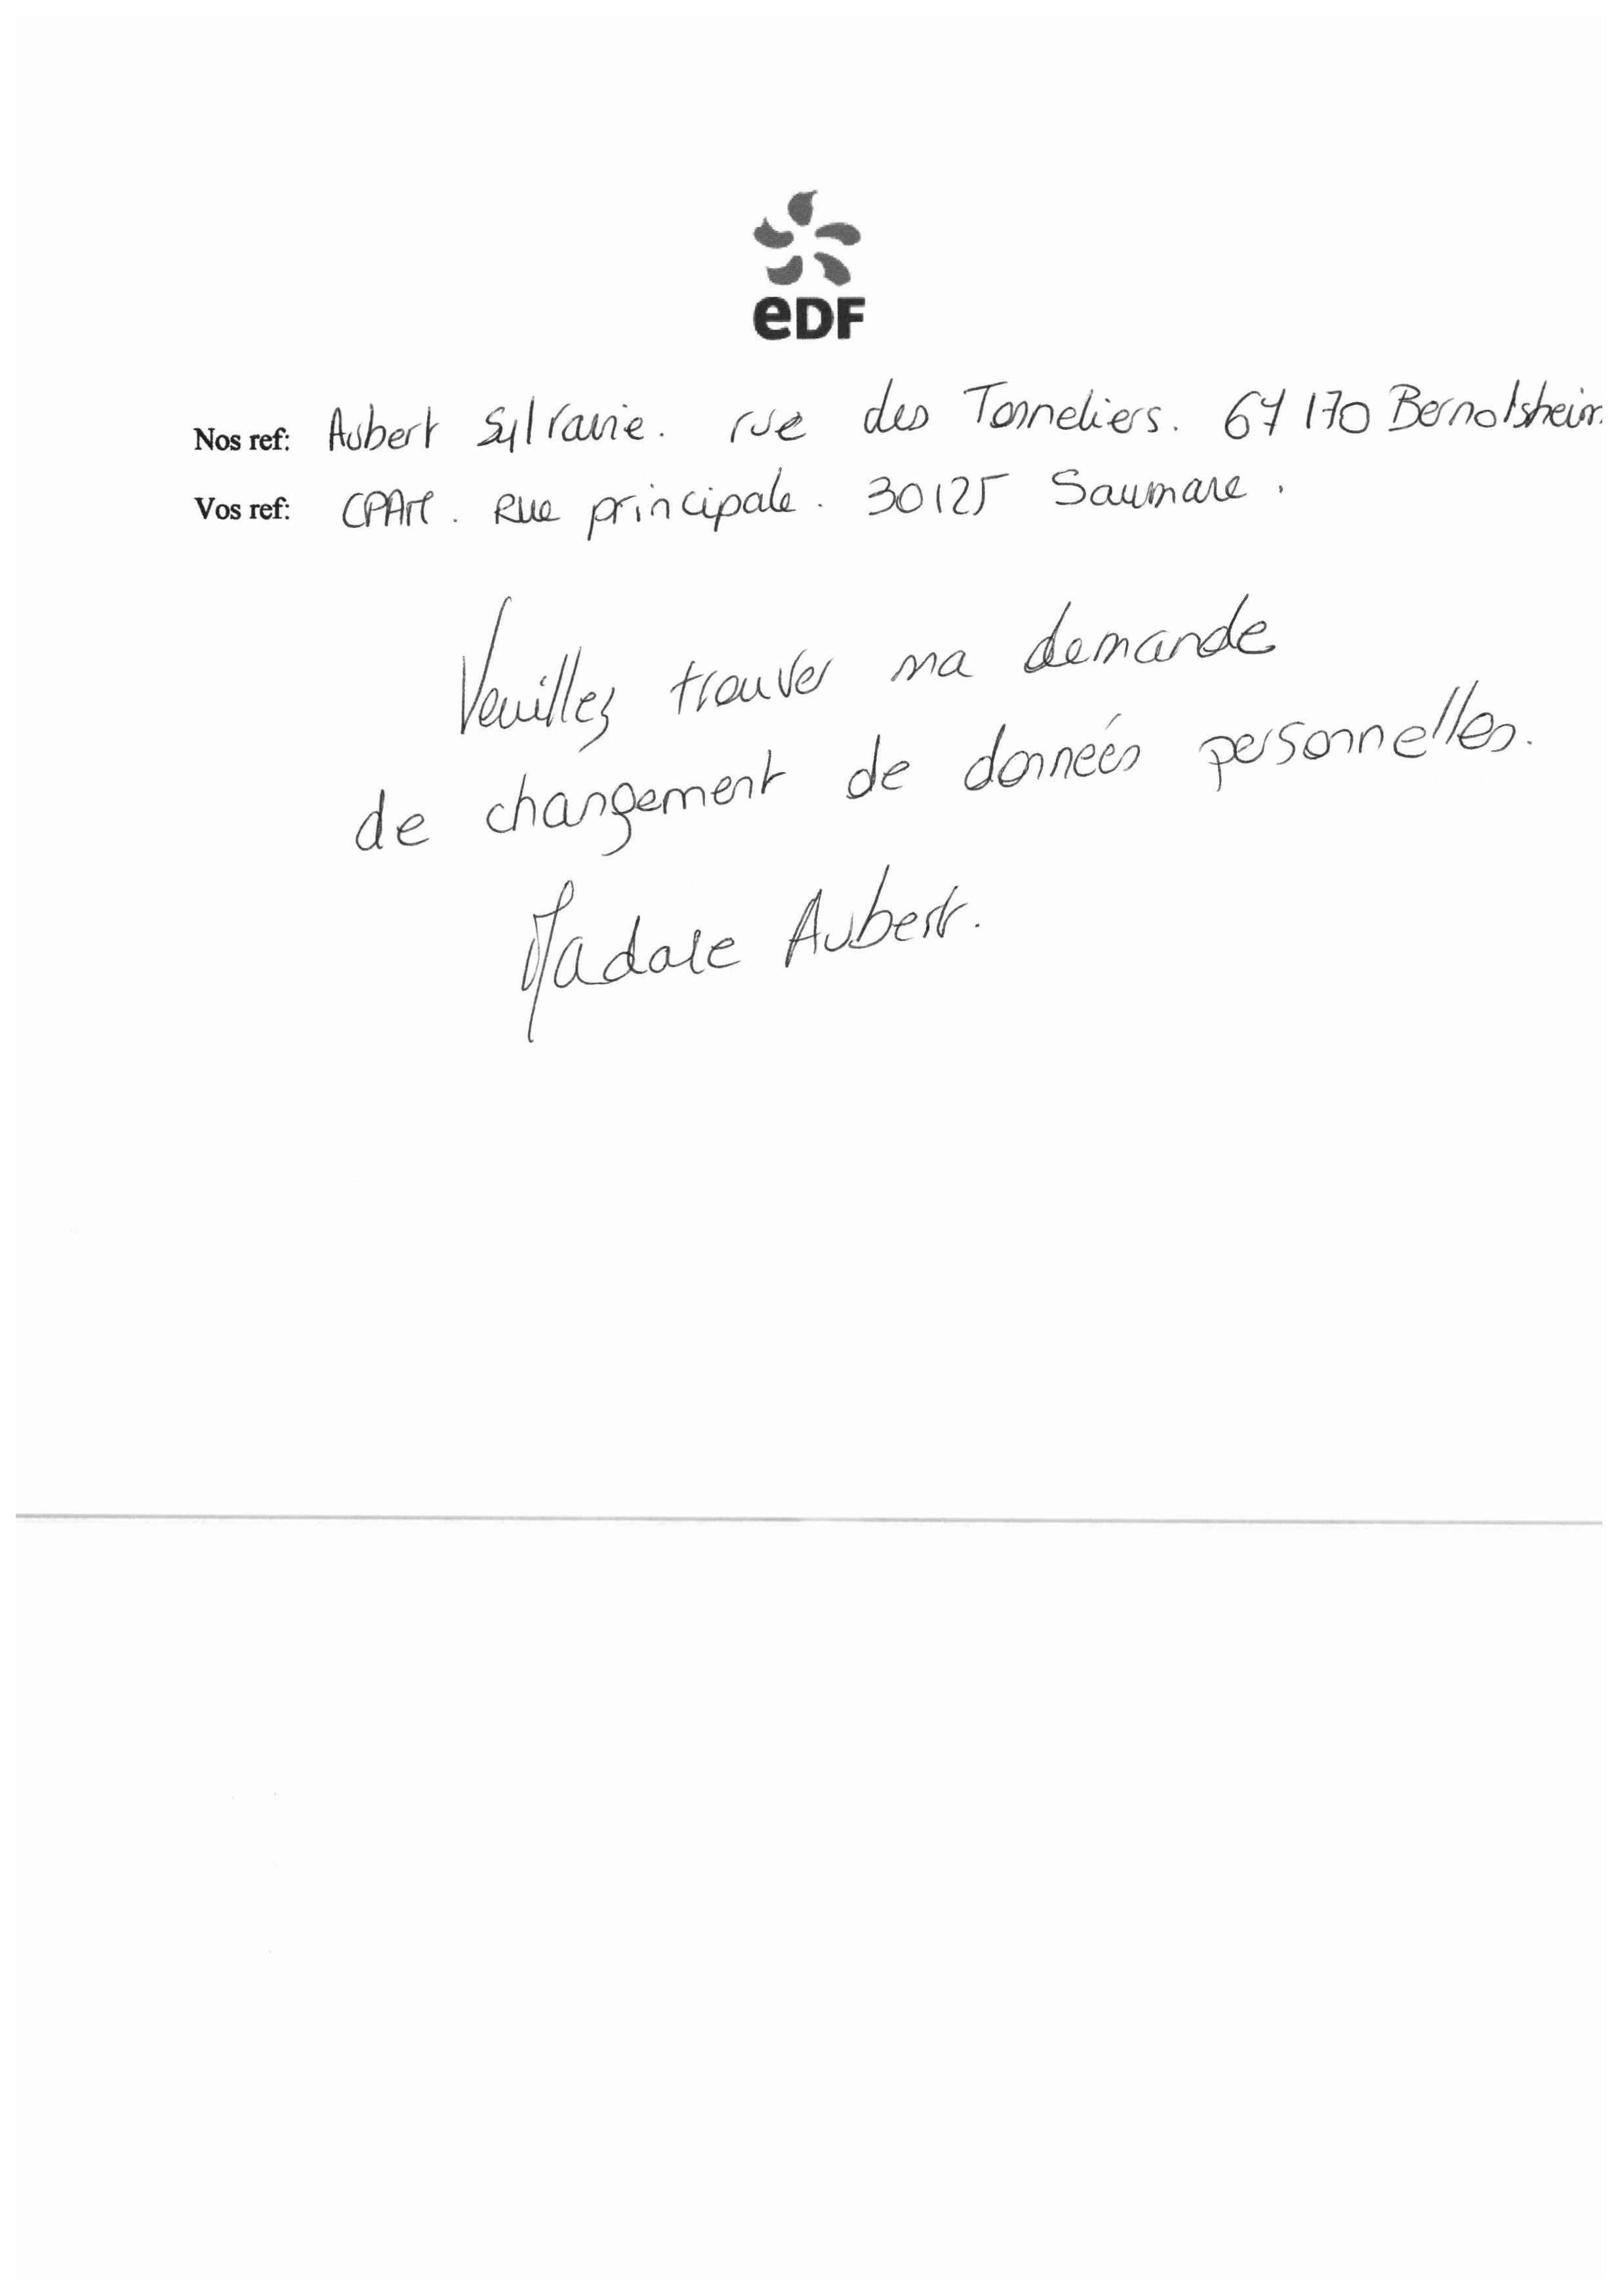 eDF
Nos ref: Aubert Sylvanie. rue des Tonneliers. 67170 Bernolsheim
Vos ref: CPAM. Rue principale. 30125 Saumane.
Veuillez trouver ma demande
de changement de données personnelles.
Madame Aubert.